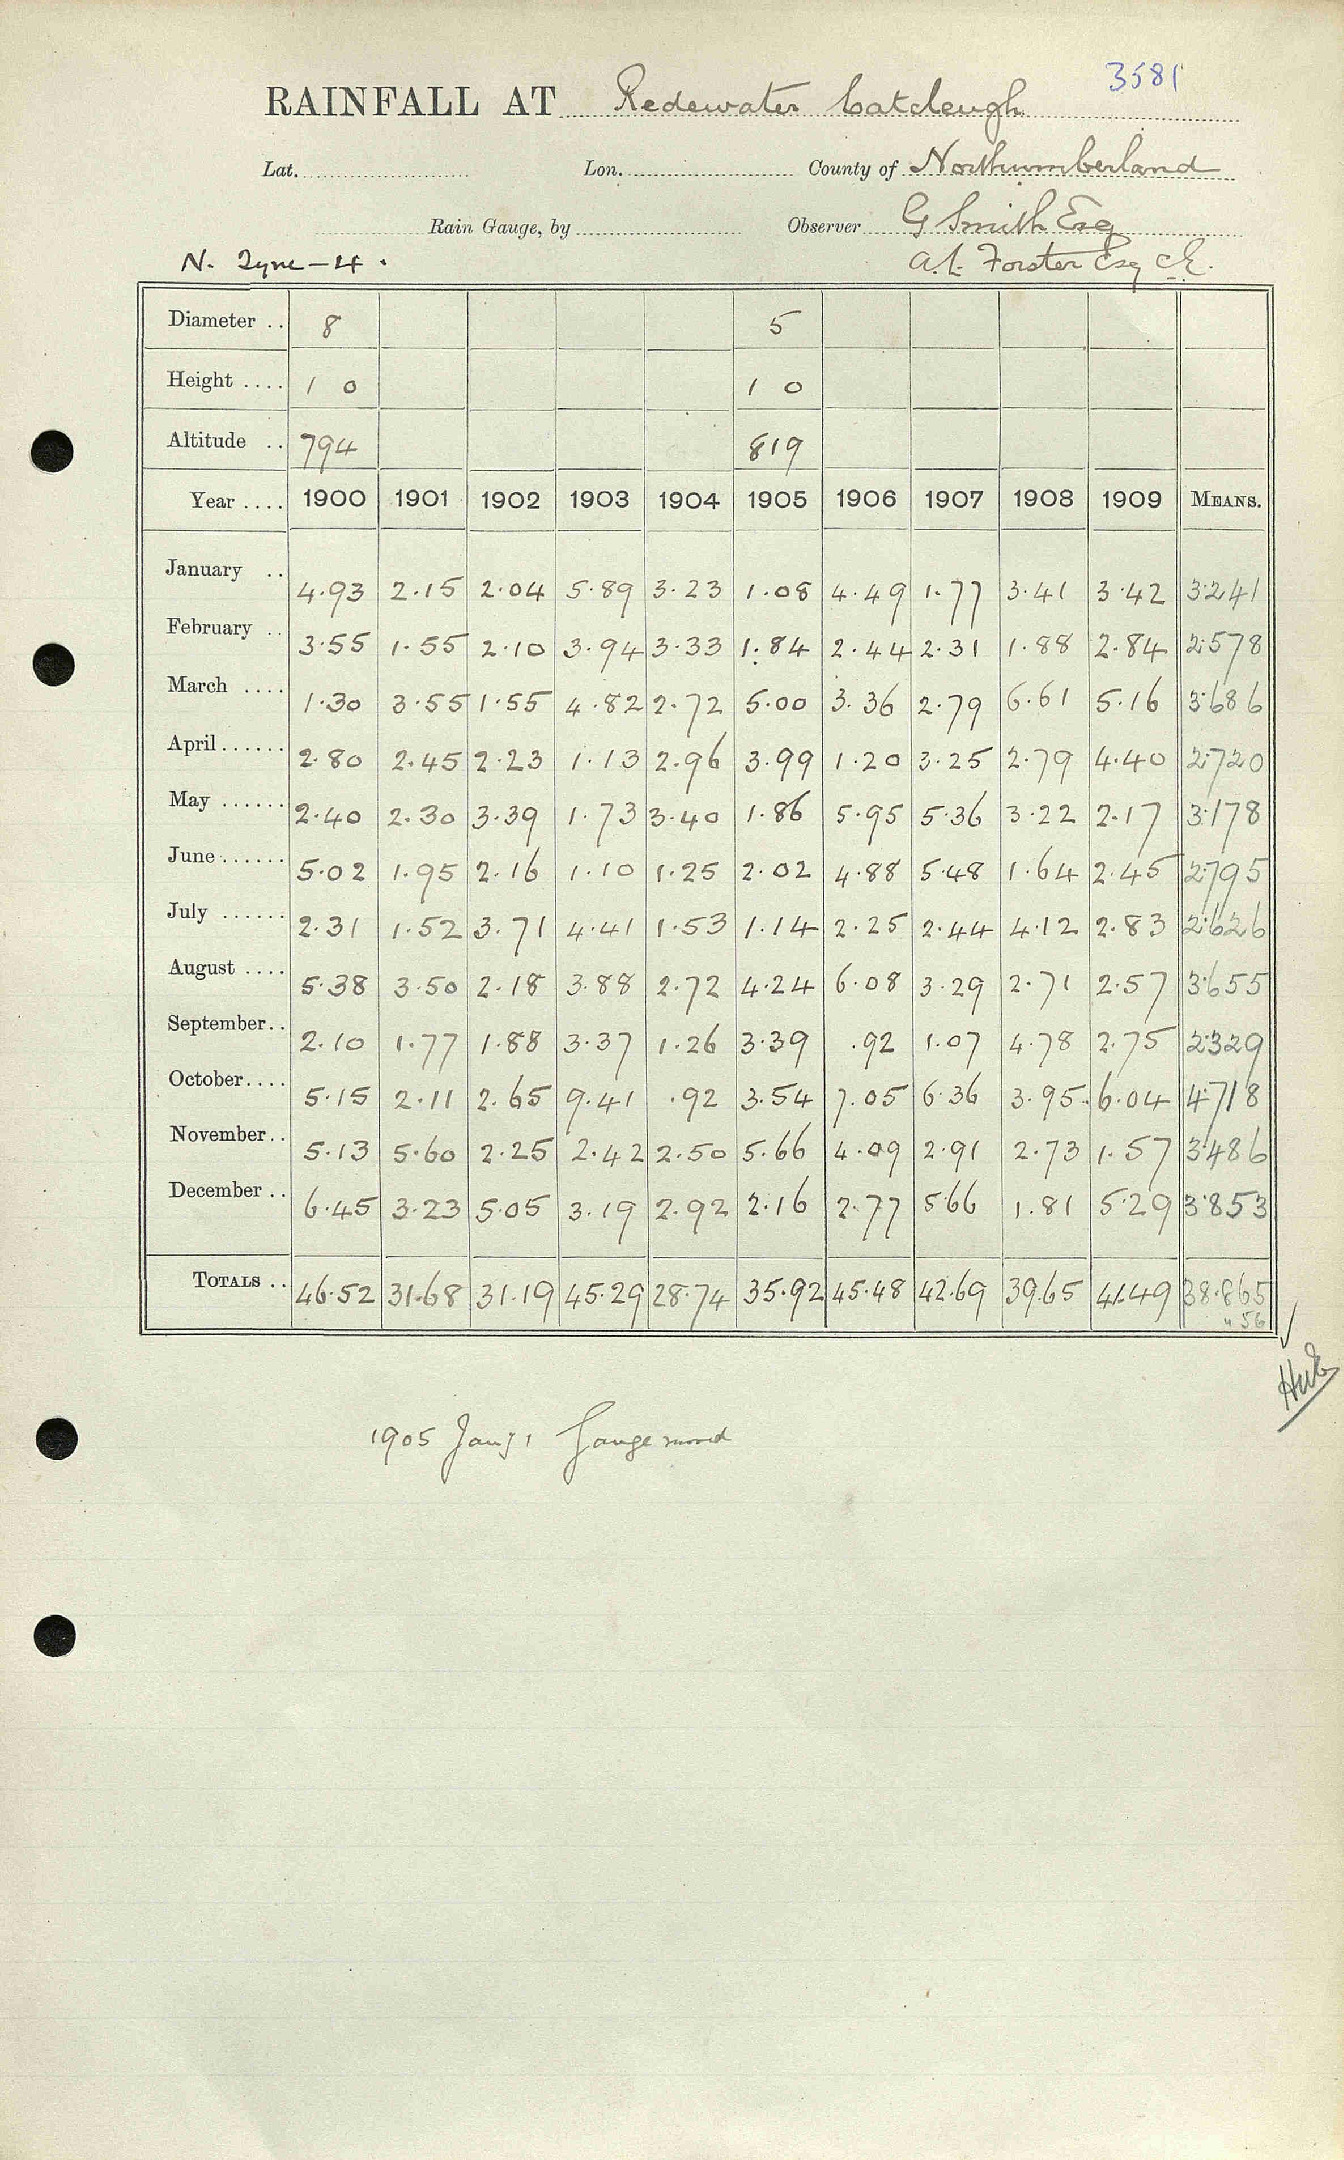 3581
RAINFALL AT Redewater Catcleugh
Lat. Lon. County of Northumberland
Rain Gauge, by Observer G Smith Esq
N. Tyne - 4. A.C. Forster Esq CE.
Diameter .. 8 5
Height .... 1 0 1 0
Altitude .. 794 819
Year .... 1900 1901 1902 1903 1904 1905 1906 1907 1908 1909 MEANS.
January .. 4.93 2.15 2.04 5.89 3.23 1.08 4.49 1.77 3.41 3.42 3.241
February .. 3.55 1.55 2.10 3.94 3.33 1.84 2.44 2.31 1.88 2.84 2.578
March .... 1.30 3.55 1.55 4.82 2.72 5.00 3.36 2.79 6.61 5.16 3.686
April ...... 2.80 2.45 2.23 1.13 2.96 3.99 1.20 3.25 2.79 4.40 2.720
May ...... 2.40 2.30 3.39 1.73 3.40 1.86 5.95 5.36 3.22 2.17 3.178
June ...... 5.02 1.95 2.16 1.10 1.25 2.02 4.88 5.48 1.64 2.45 2.795
July ...... 2.31 1.52 3.71 4.41 1.53 1.14 2.25 2.44 4.12 2.83 2.626
August .... 5.38 3.50 2.18 3.88 2.72 4.24 6.08 3.29 2.71 2.57 3.655
September.. 2.10 1.77 1.88 3.37 1.26 3.39 .92 1.07 4.78 2.75 2.329
October.... 5.15 2.11 2.65 9.41 .92 3.54 7.05 6.36 3.95 6.04 4.718
November.. 5.13 5.60 2.25 2.42 2.50 5.66 4.09 2.91 2.73 1.57 3.486
December .. 6.45 3.23 5.05 3.19 2.92 2.16 2.77 5.66 1.81 5.29 3.853
TOTALS .. 46.52 31.68 31.19 45.29 28.74 35.92 45.48 42.69 39.65 41.49 38.865
" 56
1905 Jany 1 Gauge moved